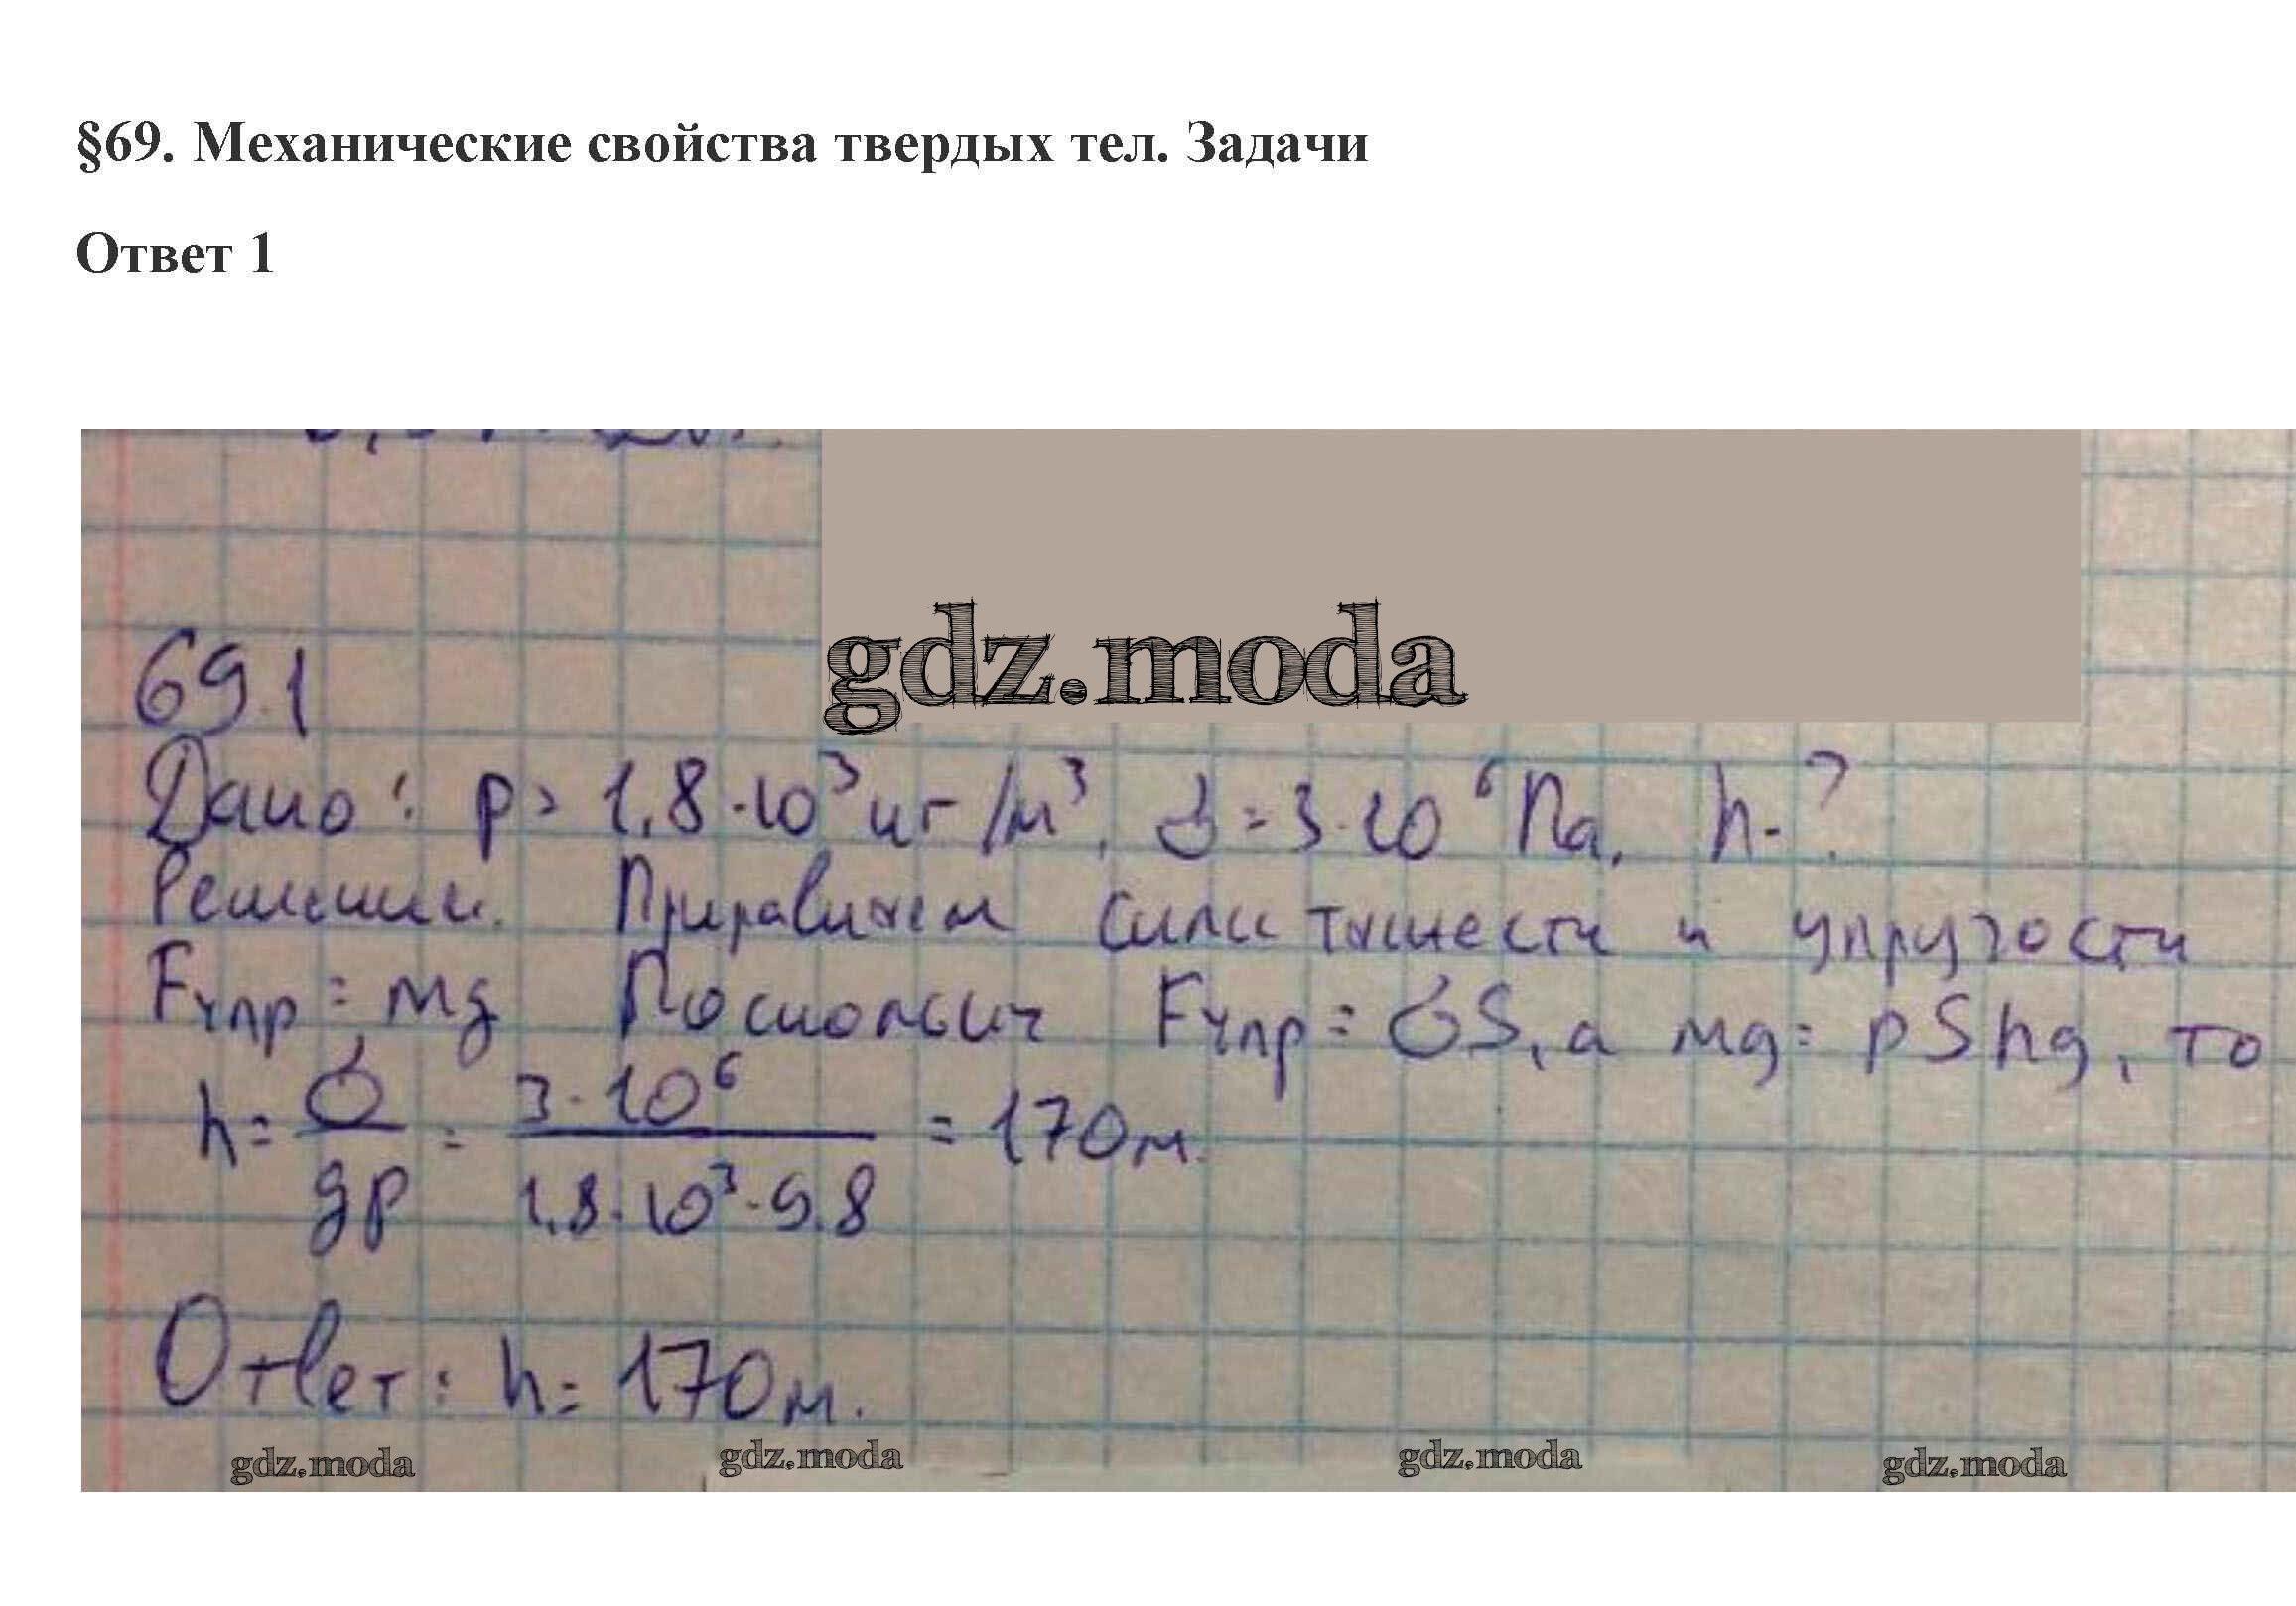 §69. Механические свойства твердых тел. Задачи
Ответ 1
gdz.moda
69.1
Дано: ρ = 1,8·10³ кг/м³, σ = 3·10⁶ Па. h-?
Решение. Приравняем силы тяжести и упругости
Fупр = mg Поскольку Fупр = σS, а mg = ρShg, то
h = σ/gρ = 3·10⁶/1,8·10³·9,8 = 170м.
Ответ: h = 170м.
gdz.moda gdz.moda gdz.moda gdz.moda